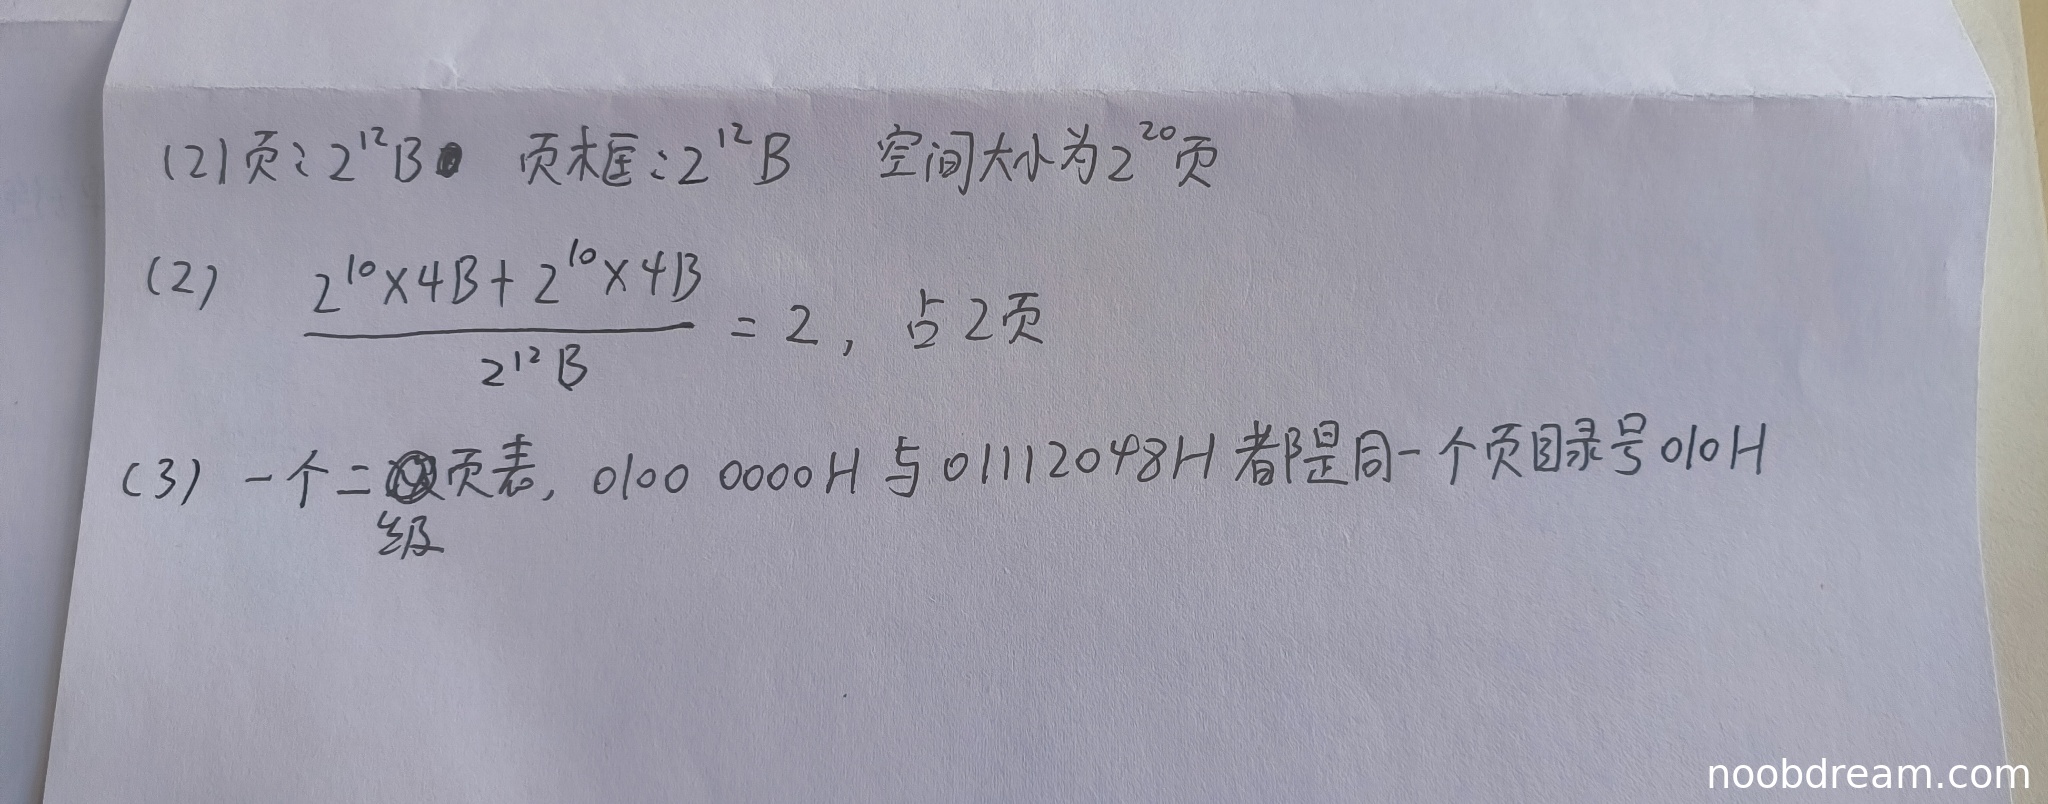 (2)页：2¹²B 页框：2¹²B 空间大小为2²⁰页
(2) (2¹⁰×4B+2¹⁰×4B)/2¹²B = 2，占2页
(3) 一个二级页表，0100 0000H与01112048H都是同一个页目录号010H
noobdream.com